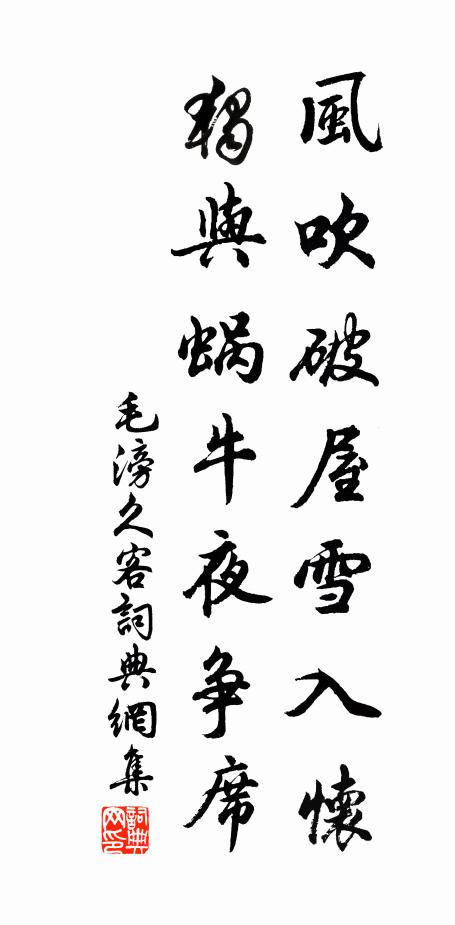 風吹破屋雪入懷
獨與蝸牛夜争席
毛滂久客詞典網集
詞典
网印